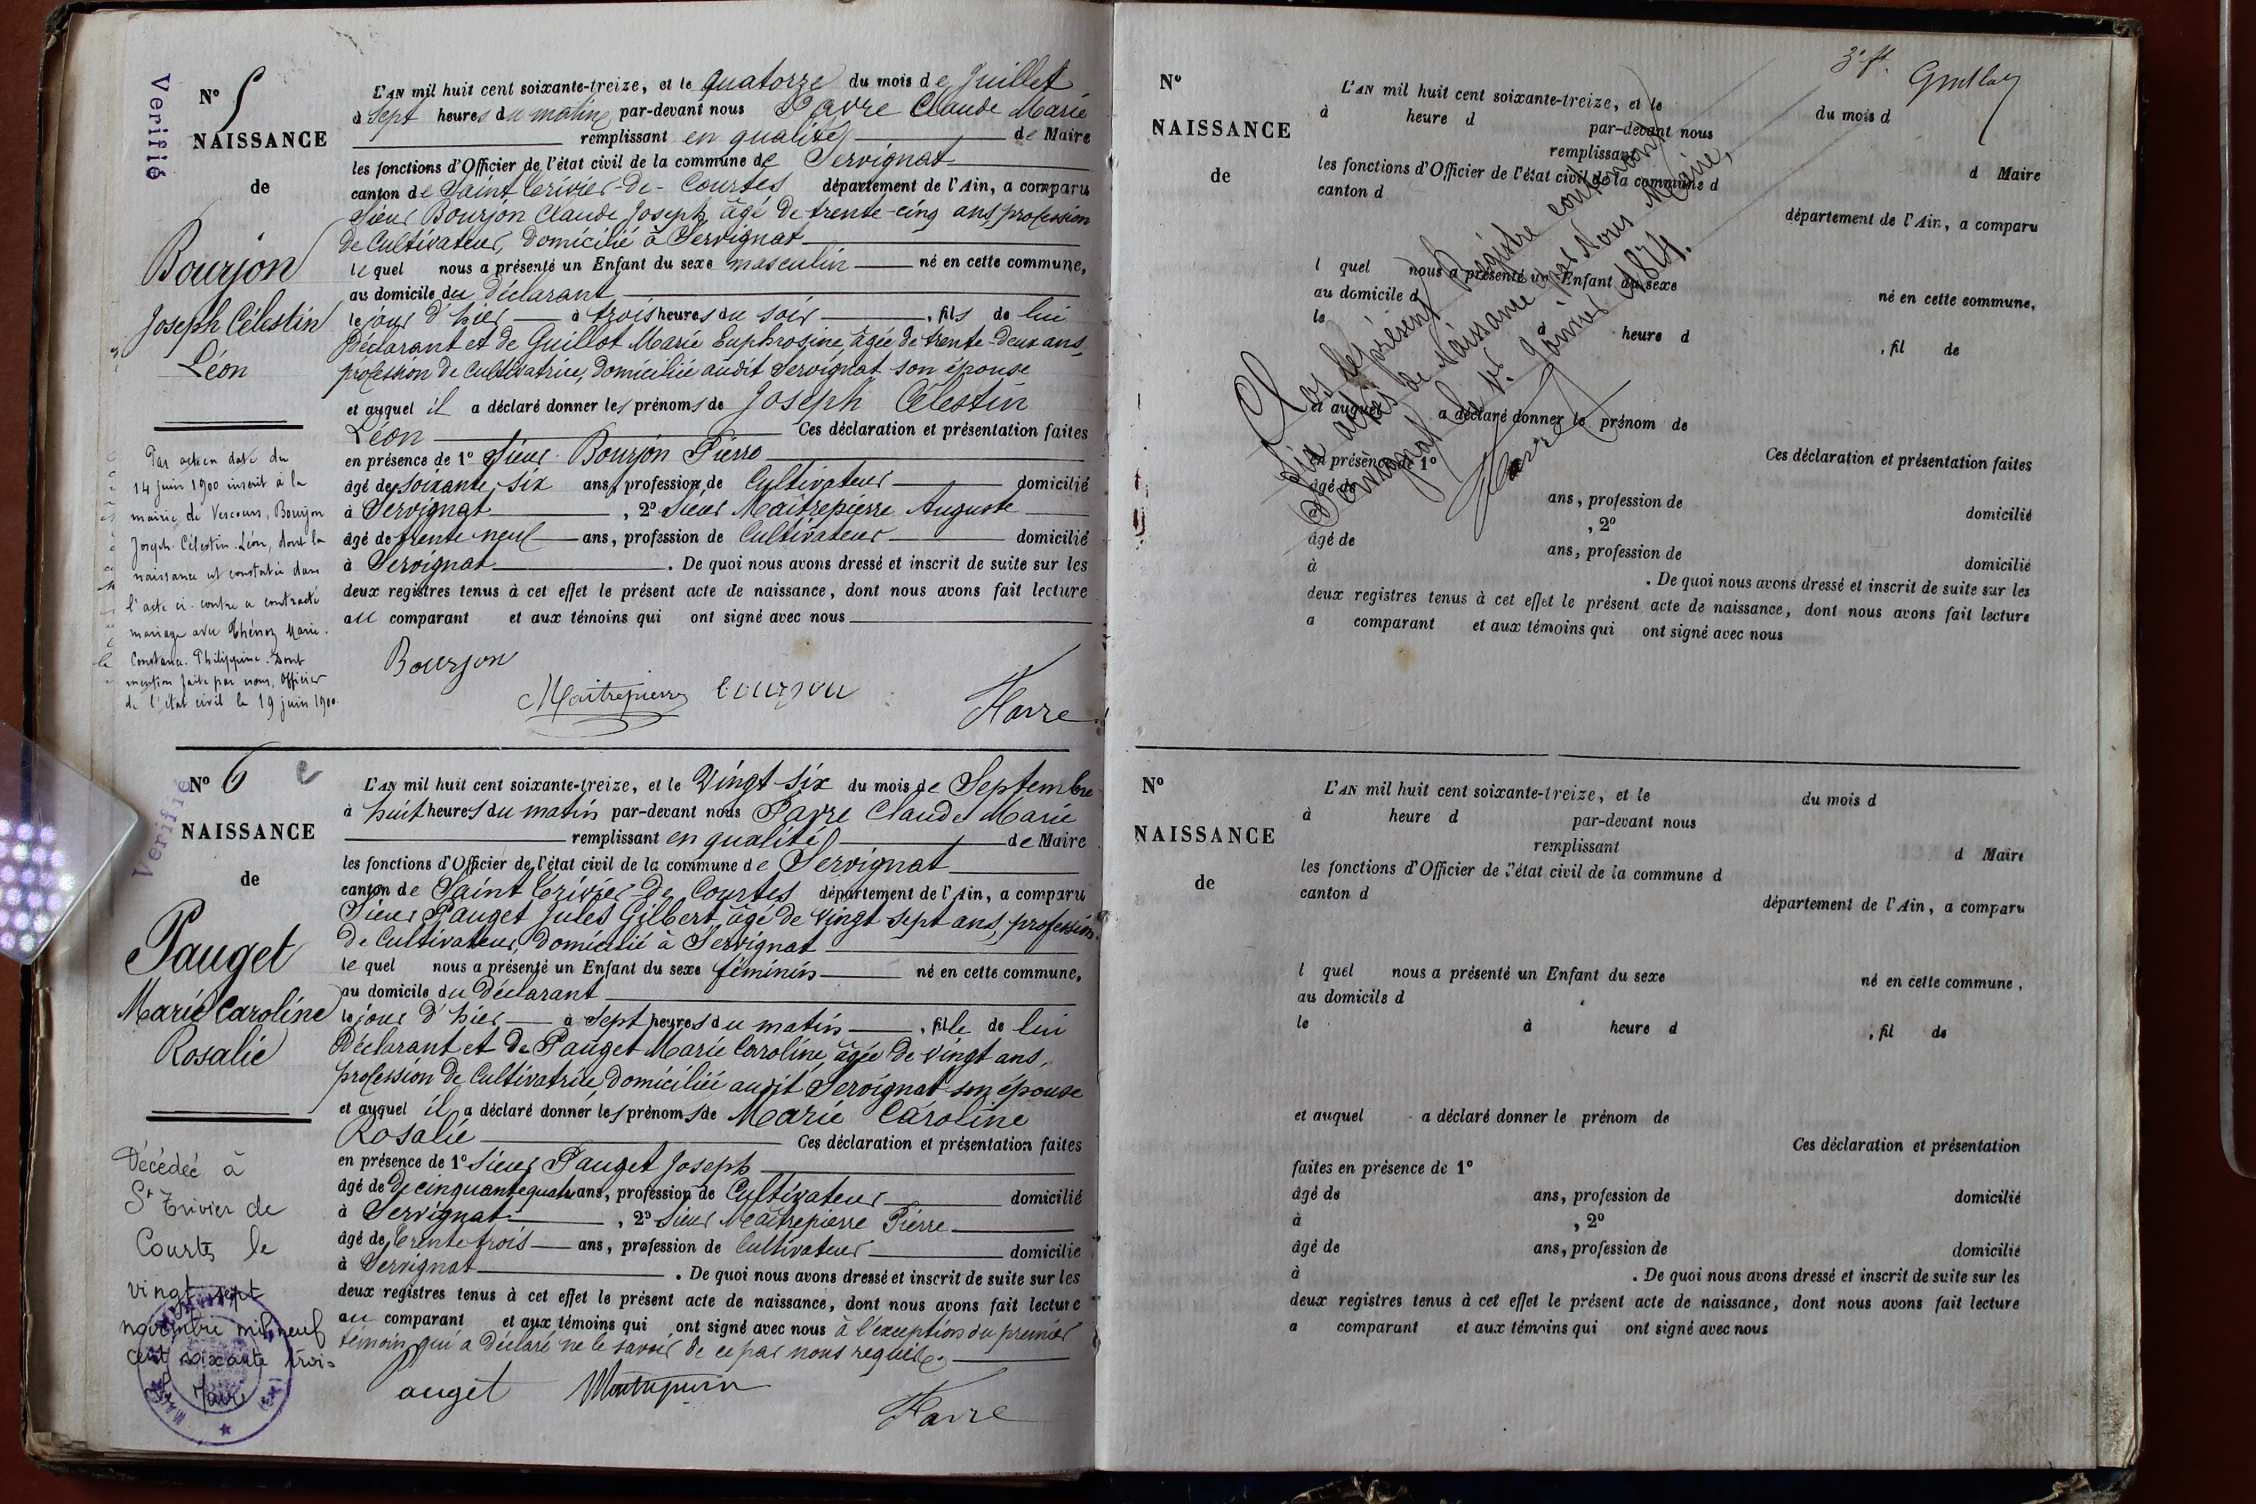 Verifié
N° 5
NAISSANCE
de
Bourjon
Joseph Célestin
Léon
Par acte en date du
14 juin 1900 inscrit à la
mairie de Vescours, Bourjon
Joseph. Célestin. Léon, dont la
naissance est constatée dans
l'acte ci-contre a contracté
mariage avec Thénoz Marie.
Constance. Philippine. Dont
mention faite par nous, Officier
de l'état civil le 19 juin 1900.
L'AN mil huit cent soixante-treize, et le quatorze du mois de Juillet
à Sept heures du matin, par-devant nous Favre Claude Marie
remplissant en qualité de Maire
les fonctions d'Officier de l'état civil de la commune de Servignat
canton de Saint Trivier-de-Courtes département de l'Ain, a comparu
Sieur Bourjon Claude Joseph, âgé de trente-cinq ans, profession
de Cultivateur, domicilié à Servignat
lequel nous a présenté un Enfant du sexe masculin né en cette commune,
au domicile du Déclarant
le jour d'hier à trois heures du soir, fils de lui
Déclarant et de Guillot Marie Euphrosine, âgée de trente-deux ans,
profession de Cultivatrice, domiciliée audit Servignat son épouse
et auquel il a déclaré donner les prénoms de Joseph Célestin
Léon Ces déclaration et présentation faites
en présence de 1° Sieur Bourjon Pierre
âgé de soixante-six ans, profession de Cultivateur domicilié
à Servignat, 2° Sieur Maitrepierre Auguste
âgé de trente neuf ans, profession de Cultivateur domicilié
à Servignat. De quoi nous avons dressé et inscrit de suite sur les
deux registres tenus à cet effet le présent acte de naissance, dont nous avons fait lecture
au comparant et aux témoins qui ont signé avec nous
Bourjon
Maitrepierre bourjon
Favre
Verifié
N° 6
NAISSANCE
de
Pauget
Marie Caroline
Rosalie
Décédée à
St Trivier de
Courtes le
vingt sept
novembre mil neuf
cent soixante trois
Le Maire
L'AN mil huit cent soixante-treize, et le Vingt-six du mois de Septembre
à huit heures du matin par-devant nous Favre Claude Marie
remplissant en qualité de Maire
les fonctions d'Officier de l'état civil de la commune de Servignat
canton de Saint Trivier De Courtes département de l'Ain, a comparu
Sieur Pauget Jules Gilbert, âgé de Vingt sept ans, profession
de Cultivateur, domicilié à Servignat
lequel nous a présenté un Enfant du sexe féminin né en cette commune,
au domicile du Déclarant
le jour d'hier à sept heures du matin, fille de lui
Déclarant et de Pauget Marie Caroline, âgée de Vingt ans,
profession de Cultivatrice, domiciliée audit Servignat son épouse
et auquel il a déclaré donner les prénoms de Marie Caroline
Rosalie Ces déclaration et présentation faites
en présence de 1° Sieur Pauget Joseph
âgé de De cinquante quatre ans, profession de Cultivateur domicilié
à Servignat, 2° Sieur Maîtrepierre Pierre
âgé de trente trois ans, profession de Cultivateur domicilié
à Servignat. De quoi nous avons dressé et inscrit de suite sur les
deux registres tenus à cet effet le présent acte de naissance, dont nous avons fait lecture
au comparant et aux témoins qui ont signé avec nous à l'exception du premier
témoin qui a déclaré ne le savoir de ce par nous requis.
Pauget Maitrepierre
Favre
3e ft.
N°
NAISSANCE
de
L'AN mil huit cent soixante-treize, et le du mois d
à heure d par-devant nous
remplissant d Maire
les fonctions d'Officier de l'état civil de la commune d
canton d département de l'Ain, a comparu
l quel nous a présenté un Enfant du sexe né en cette commune,
au domicile d
le à heure d , fil de
et auquel a déclaré donner le prénom de
Ces déclaration et présentation faites
en présence de 1°
âgé de ans, profession de domicilié
à , 2°
âgé de ans, profession de domicilié
à . De quoi nous avons dressé et inscrit de suite sur les
deux registres tenus à cet effet le présent acte de naissance, dont nous avons fait lecture
a comparant et aux témoins qui ont signé avec nous
Clos le présent Registre contenant
Six actes de Naissance par Nous Maire,
Servignat le 1er Janvier 1874.
Favre
N°
NAISSANCE
de
L'AN mil huit cent soixante-treize, et le du mois d
à heure d par-devant nous
remplissant d Maire
les fonctions d'Officier de l'état civil de la commune d
canton d département de l'Ain, a comparu
l quel nous a présenté un Enfant du sexe né en cette commune,
au domicile d
le à heure d , fil de
et auquel a déclaré donner le prénom de
Ces déclaration et présentation
faites en présence de 1°
âgé de ans, profession de domicilié
à , 2°
âgé de ans, profession de domicilié
à . De quoi nous avons dressé et inscrit de suite sur les
deux registres tenus à cet effet le présent acte de naissance, dont nous avons fait lecture
a comparant et aux témoins qui ont signé avec nous